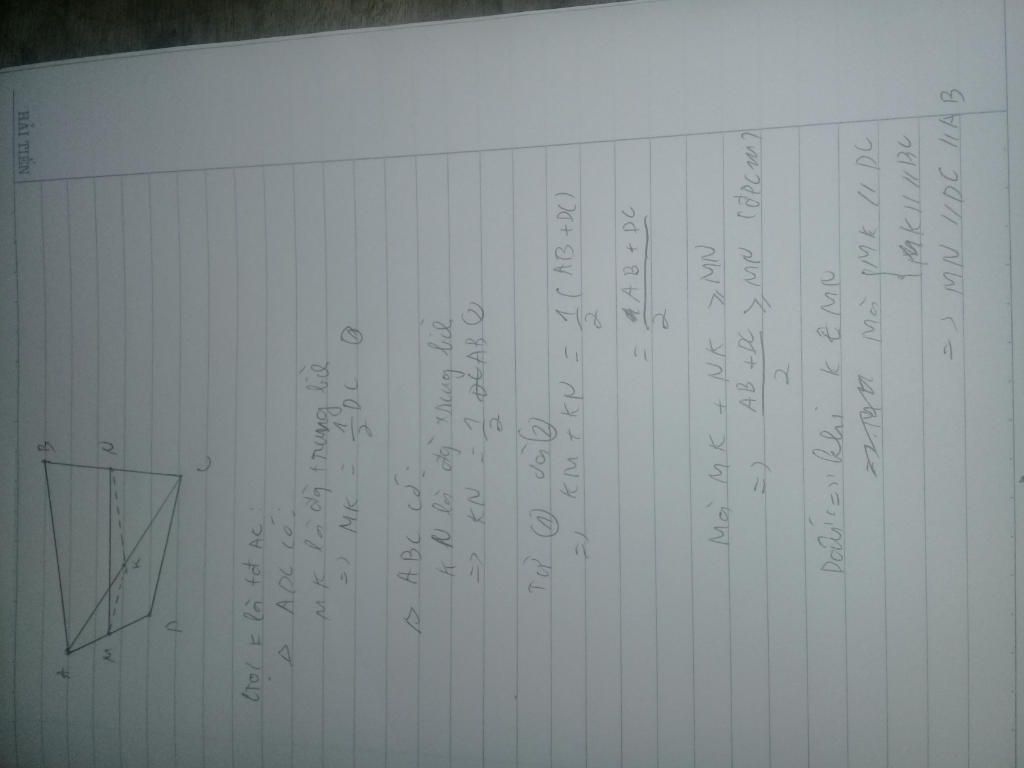 HẢI TIẾN
A
B
M
N
K
D
C
Gọi K là tđ AC.
Δ ADC có:
MK là đg trung
=> MK = 1/2 DC ①
Δ ABC có:
KN là đg trung
=> KN = 1/2 AB ②
Từ ① và ②
=> KM + KN = 1/2 (AB + DC)
= AB + DC / 2
Mà MK + NK ≥ MN
=> AB + DC / 2 ≥ MN (đpcm)
Dấu "=" khi K ∈ MN
Mà { MK // DC
=> MN // DC // AB